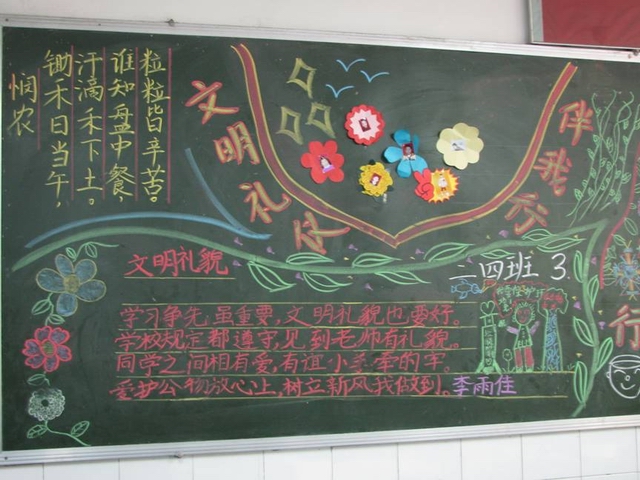 悯农
锄禾日当午，
汗滴禾下土。
谁知盘中餐，
粒粒皆辛苦。
文明礼仪伴我行
文明礼貌
二四班 3
学习争先虽重要，文明礼貌也要好。
学校规定都遵守，见到老师有礼貌。
同学之间相有爱，有谊小手牵的牢。
爱护公物放心上，树立新风我做到。李雨佳
行